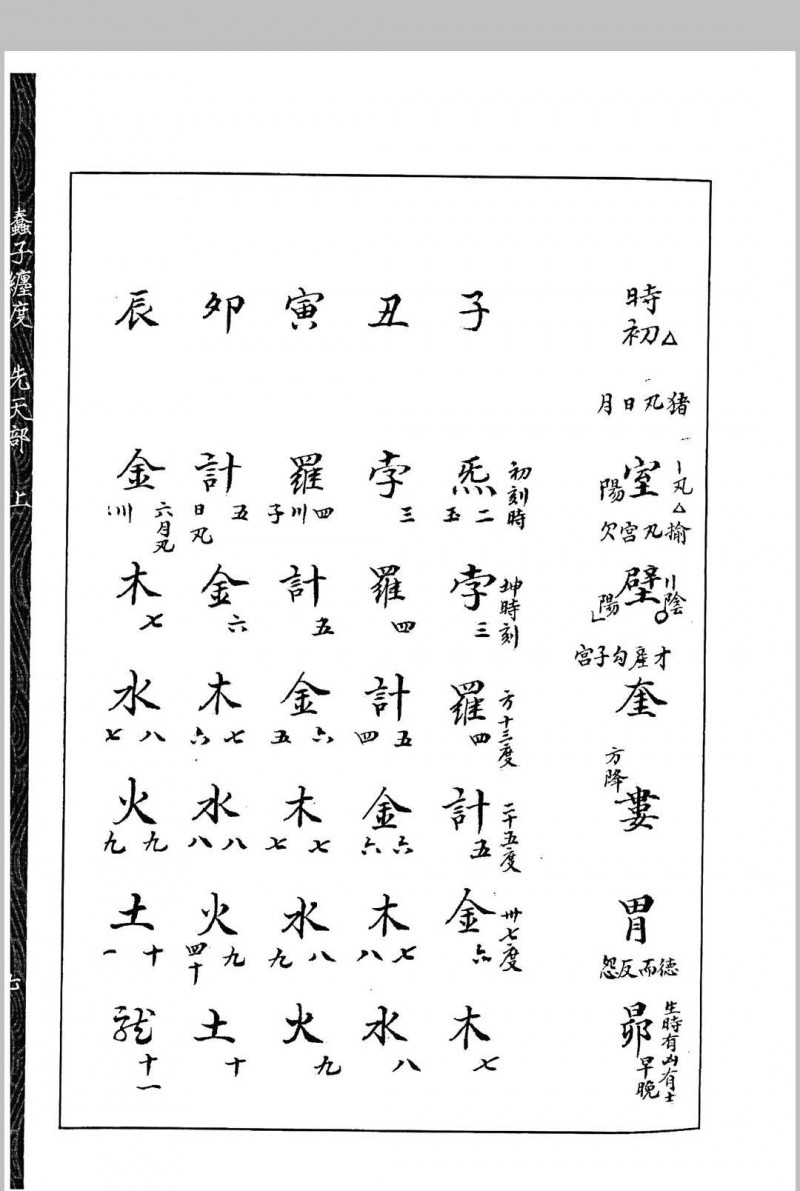 時初△
猪丸日月
室 陽
揄丸宮欠
壁 陰 陽
才產勾子宮
奎
方降
婁
胃
德而反怨
昴
生時有凶有士
早晚
子
初刻時
炁 二 五
坤時刻
孛 三
方十三度
羅 四
二十五度
計 五
卅七度
金 六
木 七
丑
孛 三
羅 四
計 五 四
金 六 六
木 七 八
水 八
寅
羅 四 川 子
計 五
金 六 五
木 七 七
水 八 九
火 九
卯
計 五
日丸
金 六
木 七 六
水 八 八
火 九 四十
土 十
辰
金 六月丸 川
木 七
水 八 七
火 九 九
土 十 一
十一
蠢子纏度 先天部 上
七